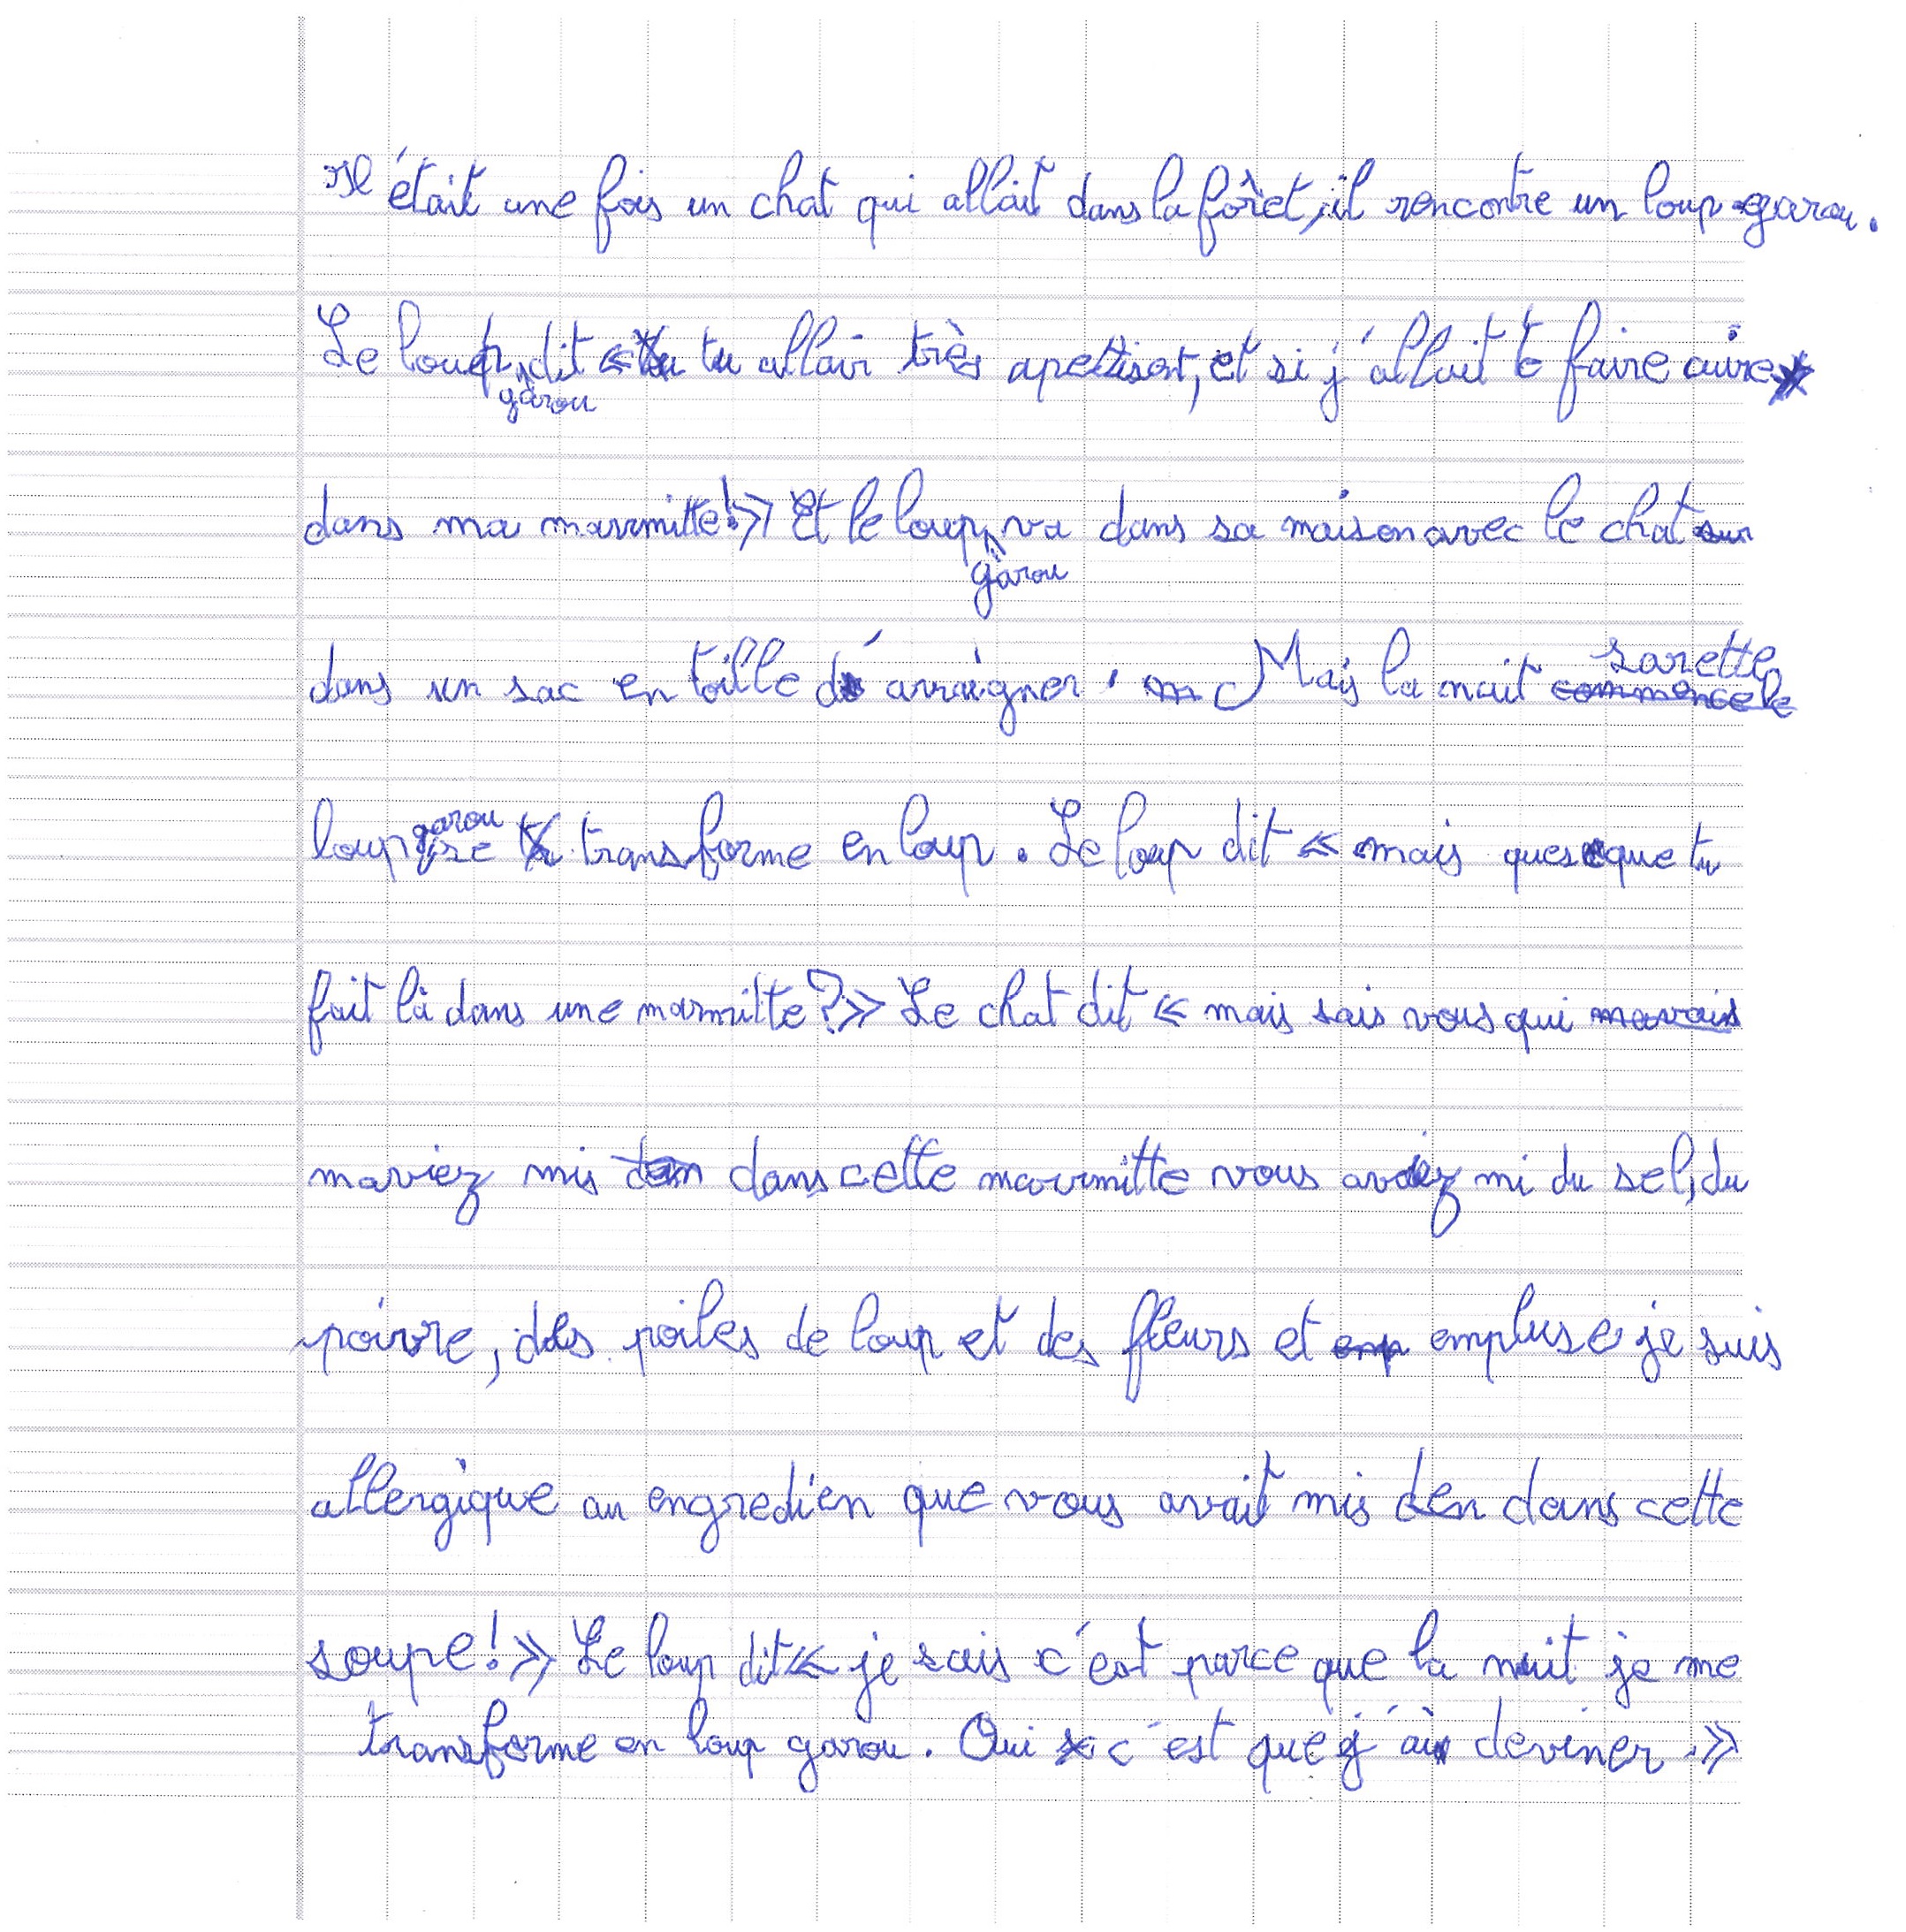 Il était une fois un chat qui allait dans la fôret, il rencontre un loup-garou.
Le loup garou dit « tu allair très apettisent, et si j'allait te faire cuire
dans ma marmitte! » Et le loup garou va dans sa maison avec le chat
dans un sac en toille dé arraigner. Mais la nuit sarette
loup garou se transforme en loup. Le loup dit « mais quesque tu
fait là dans une marmitte? » Le chat dit « mais sais vous qui
maviez mis dans cette marmitte vous aviez mi du sel, du
poivre, des poiles de loup et des fleurs et empluse je suis
allergique au engredien que vous avait mis den dans cette
soupe! » Le loup dit « je sais c'est parce que la nuit je me
transforme en loup garou. Oui c'est que j'ai deviner. »